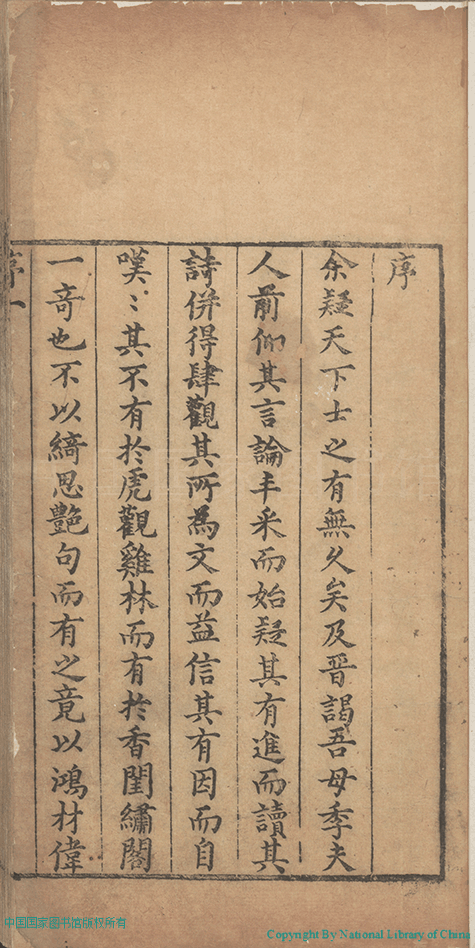 序
余疑天下士之有無久矣及晋謁吾母季夫
人前仰其言論丰采而始疑其有進而讀其
詩併得肆觀其所為文而益信其有因而自
嘆〻其不有於虎觀雞林而有於香閨繡閣
一竒也不以綺思艷句而有之竟以鴻材偉
序一
中国国家图书馆版权所有
Copyright By National Library of China